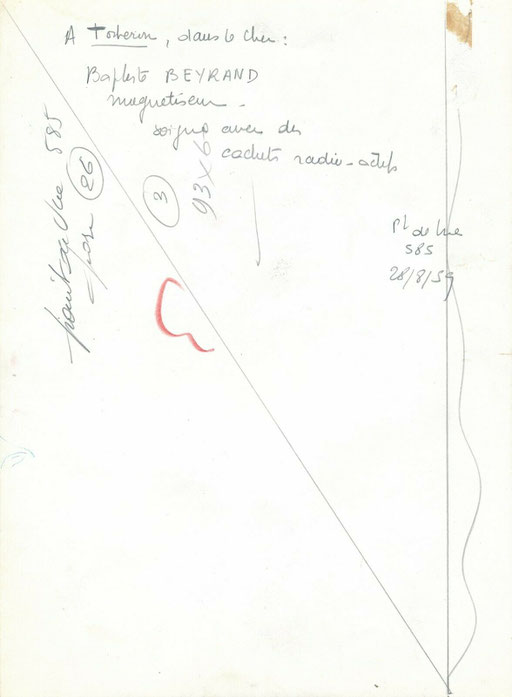 A Torteron, dans le Cher :
Baptiste BEYRAND
magnétiseur -
soigne avec des
cachets radio-actifs
Point de Vue 585
page 26
3
93 x 6
Pt de Vue
585
28/8/59